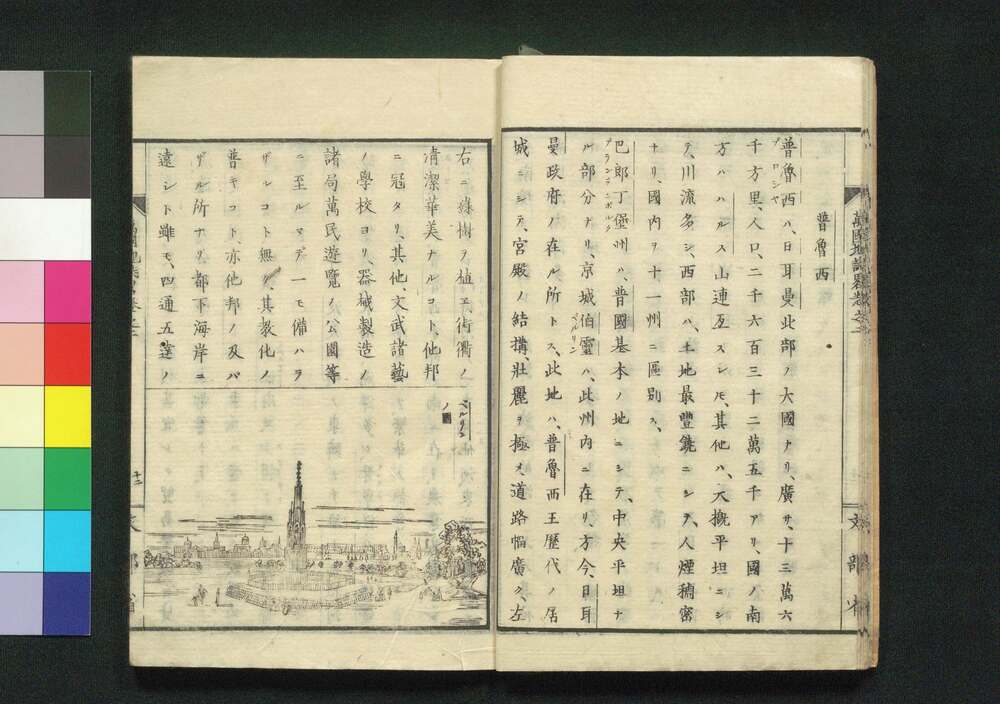 普魯西
普魯西ハ、日耳曼北部ノ大國ナリ、廣サ、十三萬六
プロシヤ
千方里、人口、二千六百三十二萬五千アリ、國ノ南
方ハハルス山連亙スレ𪜈、其他ハ、大概平坦ニシ
テ、川流多シ、西部ハ、土地最豐饒ニシテ、人煙稠密
ナリ、國内ヲ十一州ニ區別ス、
巴郎丁堡州ハ、普國基本ノ地ニシテ、中央平坦ナ
ブランデンボルク
ル部分ナリ、京城伯靈ハ、此州内ニ在リ、方今、日耳
ベルリン
曼政府ノ在ル所トス、此地ハ、普魯西王歴代ノ居
城ニシテ、宮殿ノ結搆、壯麗ヲ極メ、道路幅廣ク、左
右ニ緑樹ヲ植エ、街衢ノ
清潔華美ナルコト、他邦
ニ冠タリ、其他、文武諸藝
ノ學校ヨリ、器械製造ノ
諸局萬民遊覽ノ公園等
ニ至ルマデ、一モ備ハラ
ザルコト無ク、其教化ノ
普キコト、亦他邦ノ及バ
ザル所ナリ、都下海岸ニ
遠シト雖モ、四通五達ノ
ベルリン
ノ圖
萬國地誌略 卷之二
十二
文部省
文部省